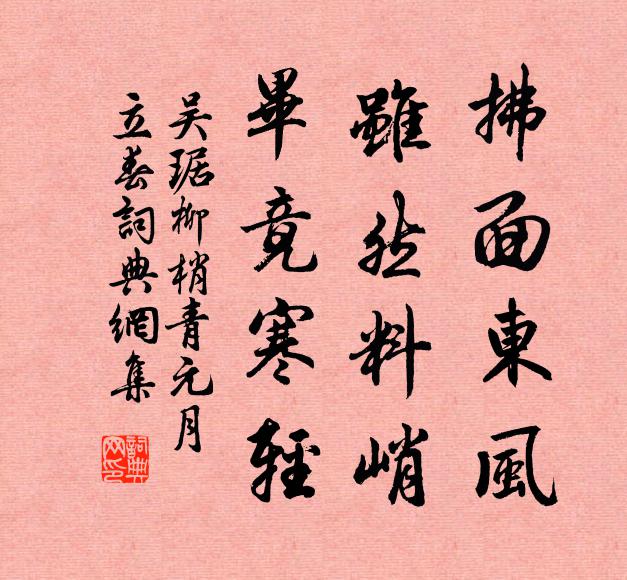 拂面東風
雖然料峭
畢竟寒輕
吴琚柳梢青元月
立春詞典網集
詞典网印